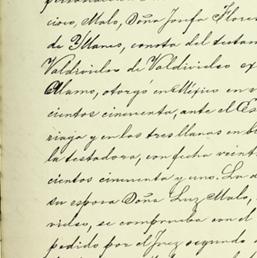 cisco, Malo, Doña Josefa Flores
de Yllanes, consta del testam
Valdivielso de Valdivielso ex
Alamo, otorgó en México en v
cientos cincuenta, ante el Es
riaga y en los tres llanos en bl
la testadora, con fecha veint
cientos cincuenta y uno. La d
su esposa Doña Luz Malo,
vielso, se comprueba con el
pedido por el Juez segundo